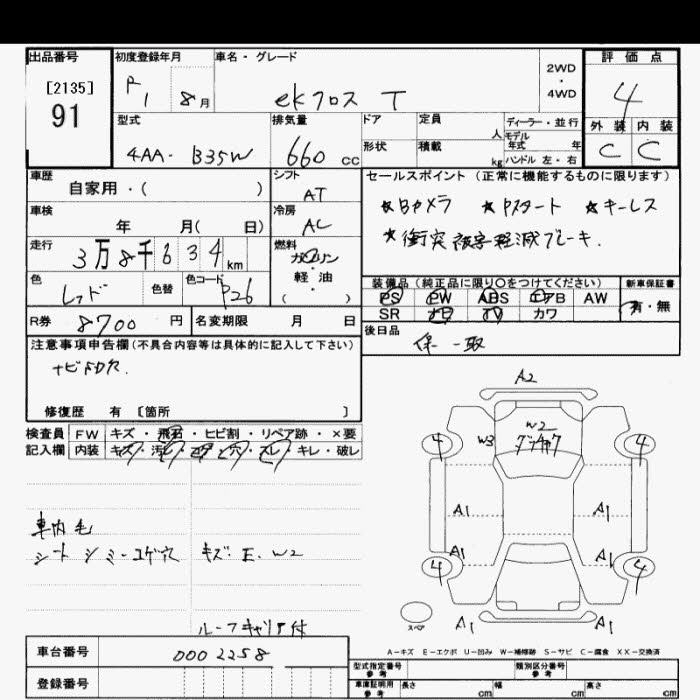 出品番号 初度登録年月 車名・グレード 評価点
[2135] 91
R1 8月
ekクロス T
2WD・4WD
4
型式 排気量 ドア 定員 人 ディーラー・並行 外装 内装
4AA- B35W 660 cc
形状 積載 kg モデル年式 年 ハンドル 左・右
C C
車歴 自家用・( )
シフト AT
セールスポイント (正常に機能するものに限ります)
★Bカメラ ★Pスタート ★キーレス
★衝突被害軽減ブレーキ.
車検 年 月( 日)
冷房 AC
走行 3万8千634km
燃料 ガソリン・軽油 ( )
色 レッド 色替 色コード P26
装備品(純正品に限り〇をつけてください) 新車保証書
PS PW ABS エアB AW
SR ナビ TV カワ
有・無
R券 8700円 名変期限 月 日
後日品
保一取
注意事項申告欄(不具合内容等は具体的に記入して下さい)
ナビ下穴.
修復歴 有 [箇所 ]
検査員 FW キズ・飛石・ヒビ割・リペア跡・×要
記入欄 内装 キズ・汚レ・コゲ・穴・スレ・キレ・破レ
車内毛
シート シミ-コゲ穴
キズ: E. W2
ルーフキャリア付
A2
W2
W3
4 4
A1 A1
A1 A1
4 4
スペア
A1 A1
A-キズ E-エクボ U-凹み W-補修跡 S-サビ C-腐食 XX-交換済
車台番号 0002258
登録番号
型式指定番号 参考 類別区分番号 参考
車庫証明用 参考 長さ cm 幅 cm 高さ cm